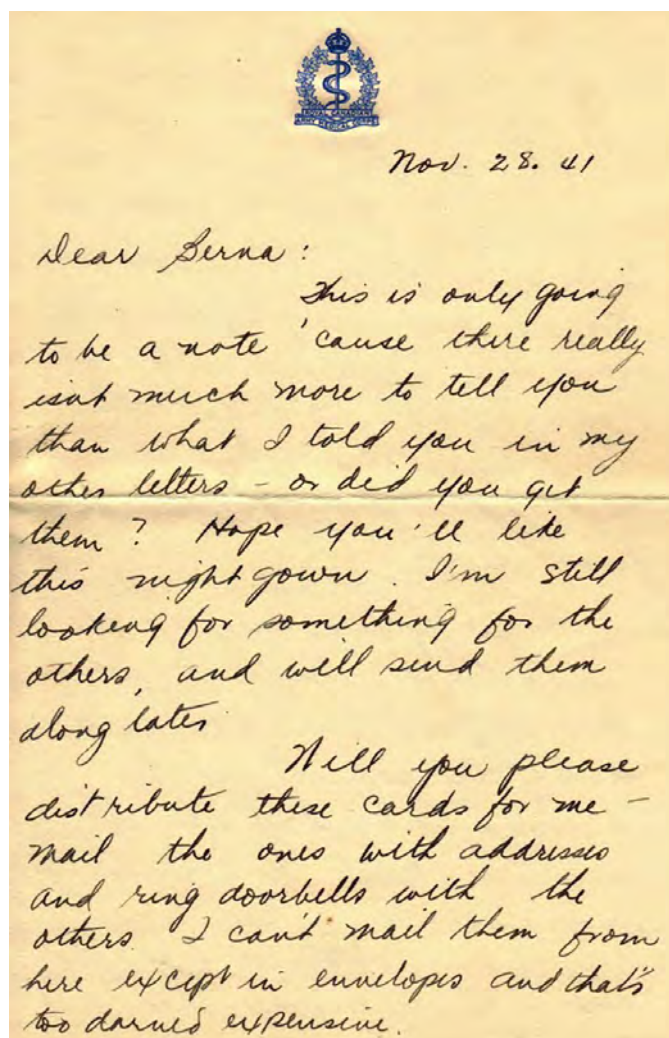 ROYAL CANADIAN
ARMY MEDICAL CORPS
Nov. 28. 41
Dear Berna:
This is only going
to be a note 'cause there really
isnt much more to tell you
than what I told you in my
other letters - or did you get
them? Hope you'll like
this nightgown. I'm still
looking for something for the
others, and will send them
along later.
Will you please
distribute these cards for me -
mail the ones with addresses
and ring doorbells with the
others. I can't mail them from
here except in envelopes and that's
too darned expensive.